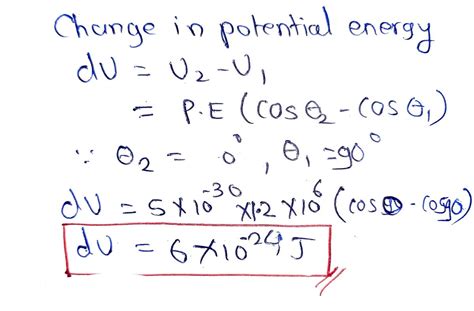 Change in potential energy
dU = U₂ - U₁
= P.E (Cos θ₂ - Cos θ₁)
∵ θ₂ = 0°, θ₁ = 90°
dU = 5 × 10⁻³⁰ × 1.2 × 10⁶ (cos 0 - Cos 90)
dU = 6 × 10⁻²⁴ J